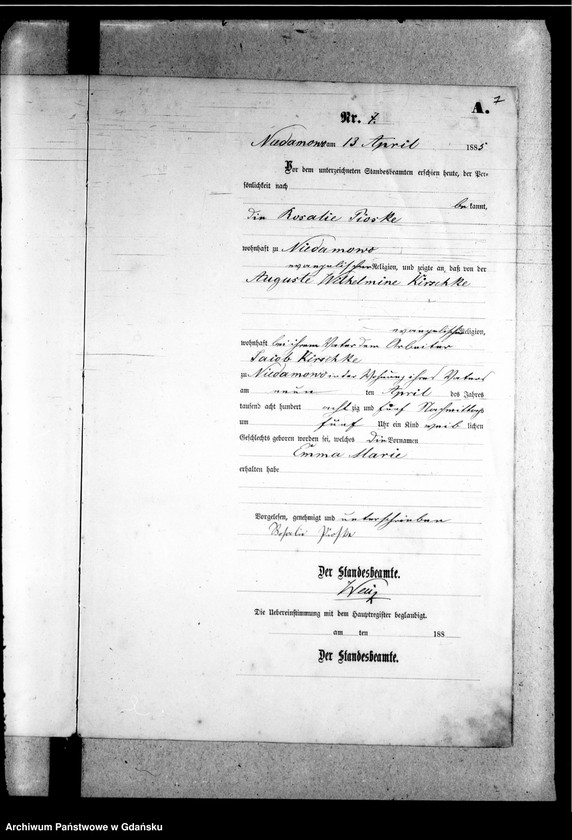 A. 7
Nr. 7.
Niedamowo am 13 April 1885
Vor dem unterzeichneten Standesbeamten erschien heute, der Per-
sönlichkeit nach
bekannt,
die Rosalie Pioske
wohnhaft zu Niedamowo
evangelischer Religion, und zeigte an, daß von der
Auguste Wilhelmine Kirschke
evangelischer Religion,
wohnhaft bei ihrem Vater dem Arbeiter
Kirschke
zu Niedamowo in der Wohnung ihres Vaters
am neun ten April des Jahres
tausend acht hundert acht zig und fünf Nachmittags
um fünf Uhr ein Kind weib lichen
Geschlechts geboren worden sei, welches die Vornamen
Emma Marie
erhalten habe
Vorgelesen, genehmigt und unterschrieben
Rosalie Pioske
Der Standesbeamte.
Die Uebereinstimmung mit dem Hauptregister beglaubigt.
am ten 188
Der Standesbeamte.
Archiwum Państwowe w Gdańsku